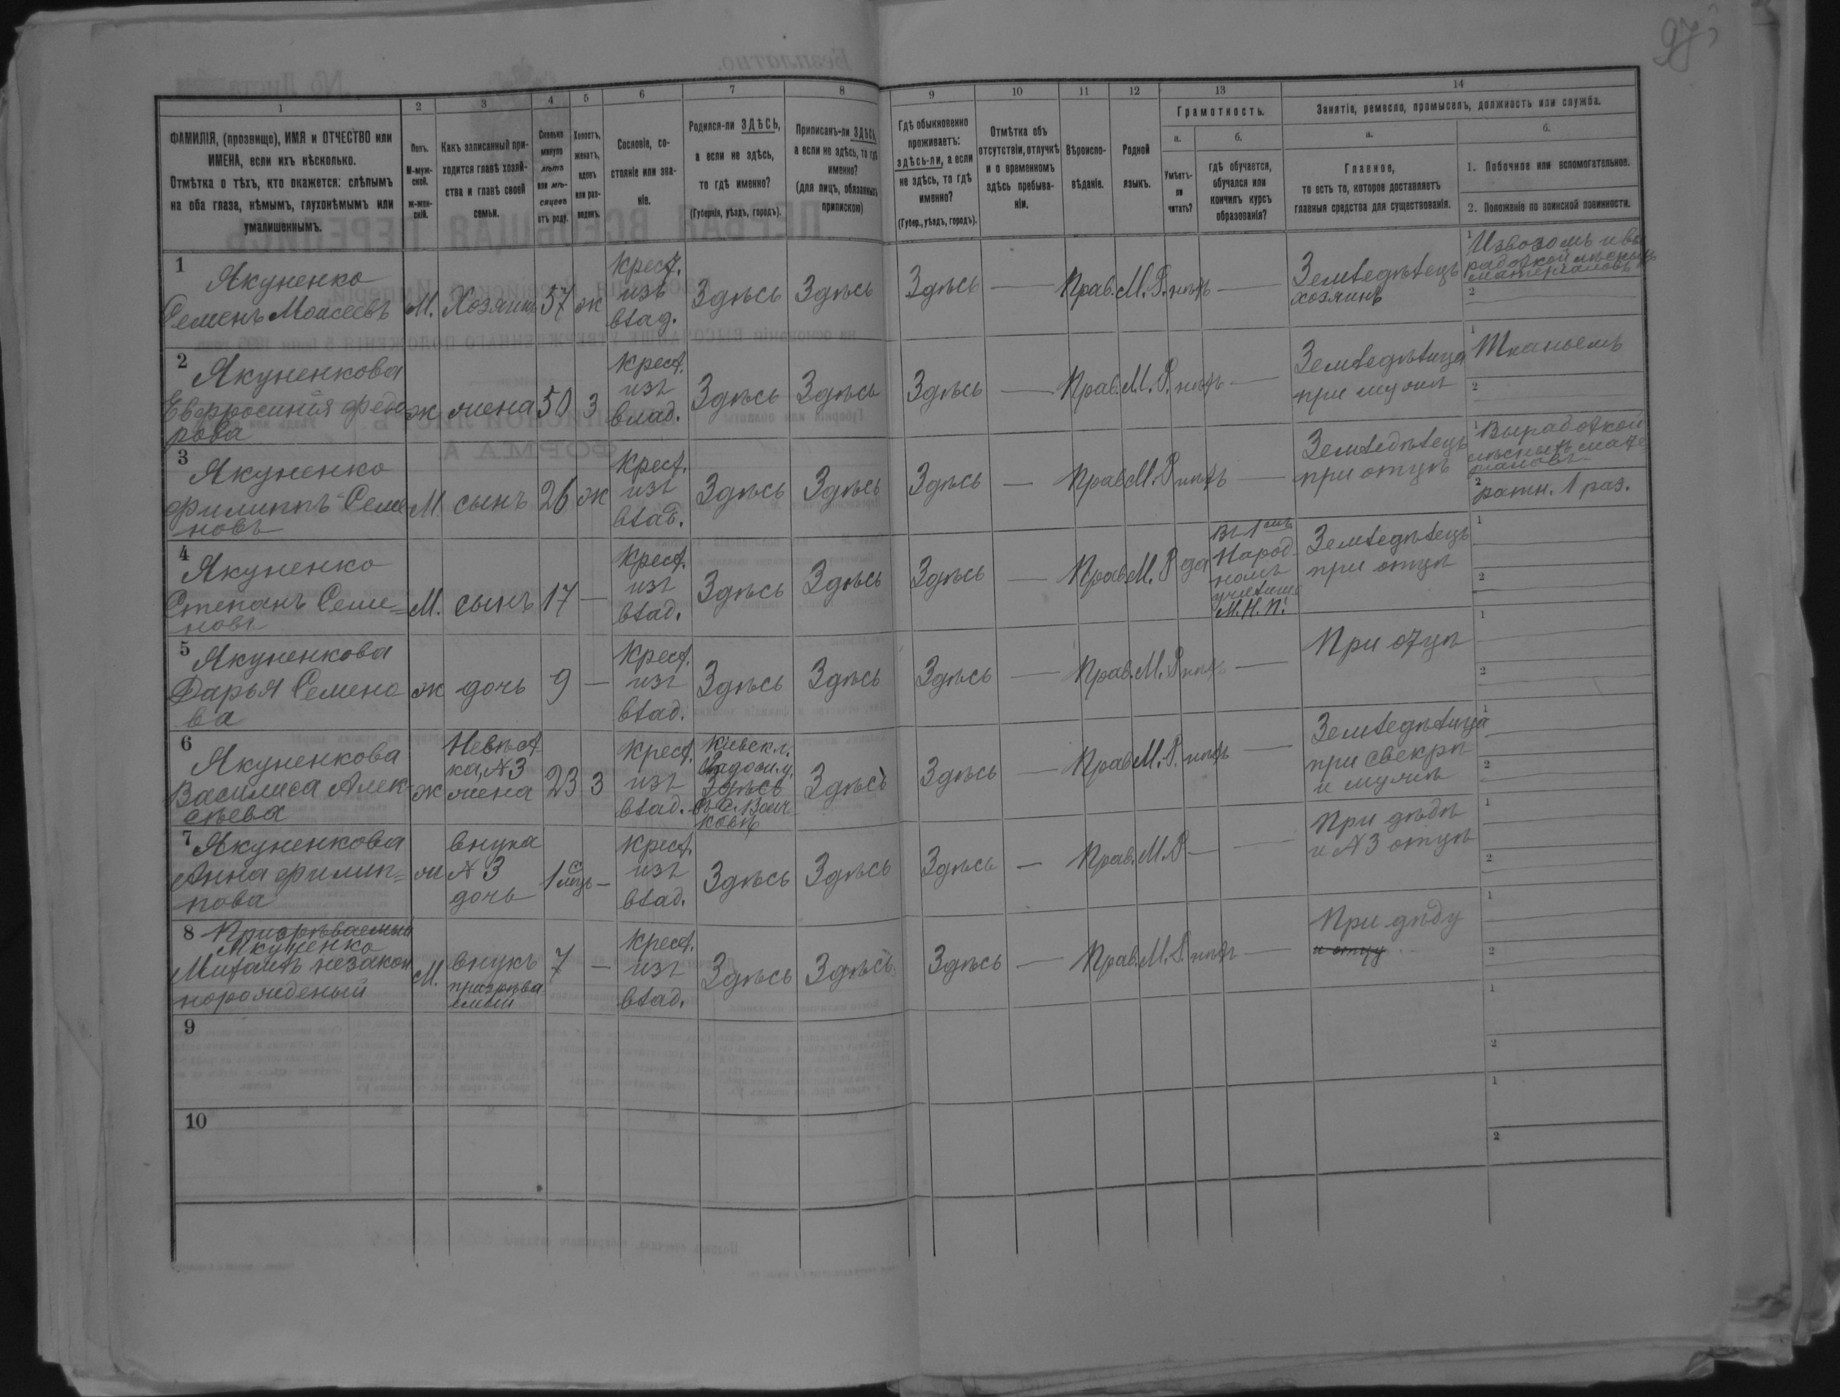 97
1
2
3
4
5
6
7
8
9
10
11
12
13
14
ФАМИЛІЯ, (прозвище), ИМЯ и ОТЧЕСТВО или
ИМЕНА, если ихъ нѣсколько.
Отмѣтка о тѣхъ, кто окажется: слѣпымъ
на оба глаза, нѣмымъ, глухонѣмымъ или
умалишеннымъ.
Полъ.
М-муж-
ской.
ж-жен-
скій.
Какъ записанный при-
ходится главѣ хозяй-
ства и главѣ своей
семьи.
Сколько
минуло
лѣтъ
или мѣ-
сяцевъ
отъ роду.
Холостъ,
женатъ,
вдовъ
или раз-
веденъ.
Сословіе, со-
стояніе или зва-
ніе.
Родился-ли ЗДѢСЬ,
а если не здѣсь,
то гдѣ именно?
(Губернія, уѣздъ, городъ).
Приписанъ-ли ЗДѢСЬ,
а если не здѣсь, то гдѣ
именно?
(для лицъ, обязанныхъ
припискою)
Гдѣ обыкновенно
проживаетъ:
здѣсь-ли, а если
не здѣсь, то гдѣ
именно?
(Губер., уѣздъ, городъ).
Отмѣтка объ
отсутствіи, отлучкѣ
и о временномъ
здѣсь пребыва-
ніи.
Вѣроиспо-
вѣданіе.
Родной
языкъ.
Грамотность.
а.
Умѣетъ-
ли
читать?
б.
гдѣ обучается,
обучался или
кончилъ курсъ
образованія?
Занятіе, ремесло, промыселъ, должность или служба.
а.
Главное,
то есть то, которое доставляетъ
главныя средства для существованія.
б.
1. Побочное или вспомогательное.
2. Положеніе по воинской повинности.
1
Якуненко
Семенъ Моисеевъ
М.
Хозяинъ
57
ж
Крест.
изъ
влад.
Здѣсь
Здѣсь
Здѣсь
—
Прав.
М. Р.
нѣтъ
—
Земледѣлецъ
хозяинъ
1 Извозомъ и вы
работкой лѣсныхъ
матерьяловъ
2
2
Якуненкова
Евфросинія Федо
рова
ж
жена
50
З
Крест.
изъ
влад.
Здѣсь
Здѣсь
Здѣсь
—
Прав.
М. Р.
нѣтъ
—
Земледѣлица
при мужѣ
1 Тканьемъ
2
3
Якуненко
Филиппъ Семе
новъ
М
сынъ
26
ж
Крест.
изъ
влад.
Здѣсь
Здѣсь
Здѣсь
—
Прав.
М. Р.
нѣтъ
—
Земледѣлецъ
при отцѣ
1 Выработкой
лѣсныхъ мате
рьяловъ
2 ратн. 1 раз.
4
Якуненко
Степанъ Семе=
новъ
М.
сынъ
17
—
Крест.
изъ
влад.
Здѣсь
Здѣсь
Здѣсь
—
Прав.
М. Р
да
Въ 1 омъ
Народ
номъ
училищѣ
М. Н. П.
Земледѣлецъ
при отцѣ
1
2
5
Якуненкова
Дарья Семено
ва
ж
дочь
9
—
Крест.
изъ
влад.
Здѣсь
Здѣсь
Здѣсь
—
Прав.
М. Р
нѣтъ
—
При отцѣ
1
2
6
Якуненкова
Василиса Алек
сѣева
ж
Невѣст
ка, N 3
жена
23
З
Крест.
изъ
влад.
Кіевск.
Радомы.
Здѣсь
Здѣсь
—
Прав.
М. Р.
нѣтъ
—
Земледѣлица
при свекрѣ
и мужѣ
1
2
7
Якуненкова
Анна Филип=
пова
ж
внука
N 3
дочь
1 мѣсц
—
Крест.
изъ
влад.
Здѣсь
Здѣсь
Здѣсь
—
Прав.
М. Р
—
—
При дѣдѣ
и N 3 отцѣ
1
2
8
Призрѣваемый
Якуненко
Михаилъ незакон
норожденый
М.
внукъ
призрѣва
емый
7
—
Крест.
изъ
влад.
Здѣсь
Здѣсь
Здѣсь
—
Прав.
М. Р.
нѣтъ
—
При дѣду
и отцу
1
2
9
1
2
10
1
2